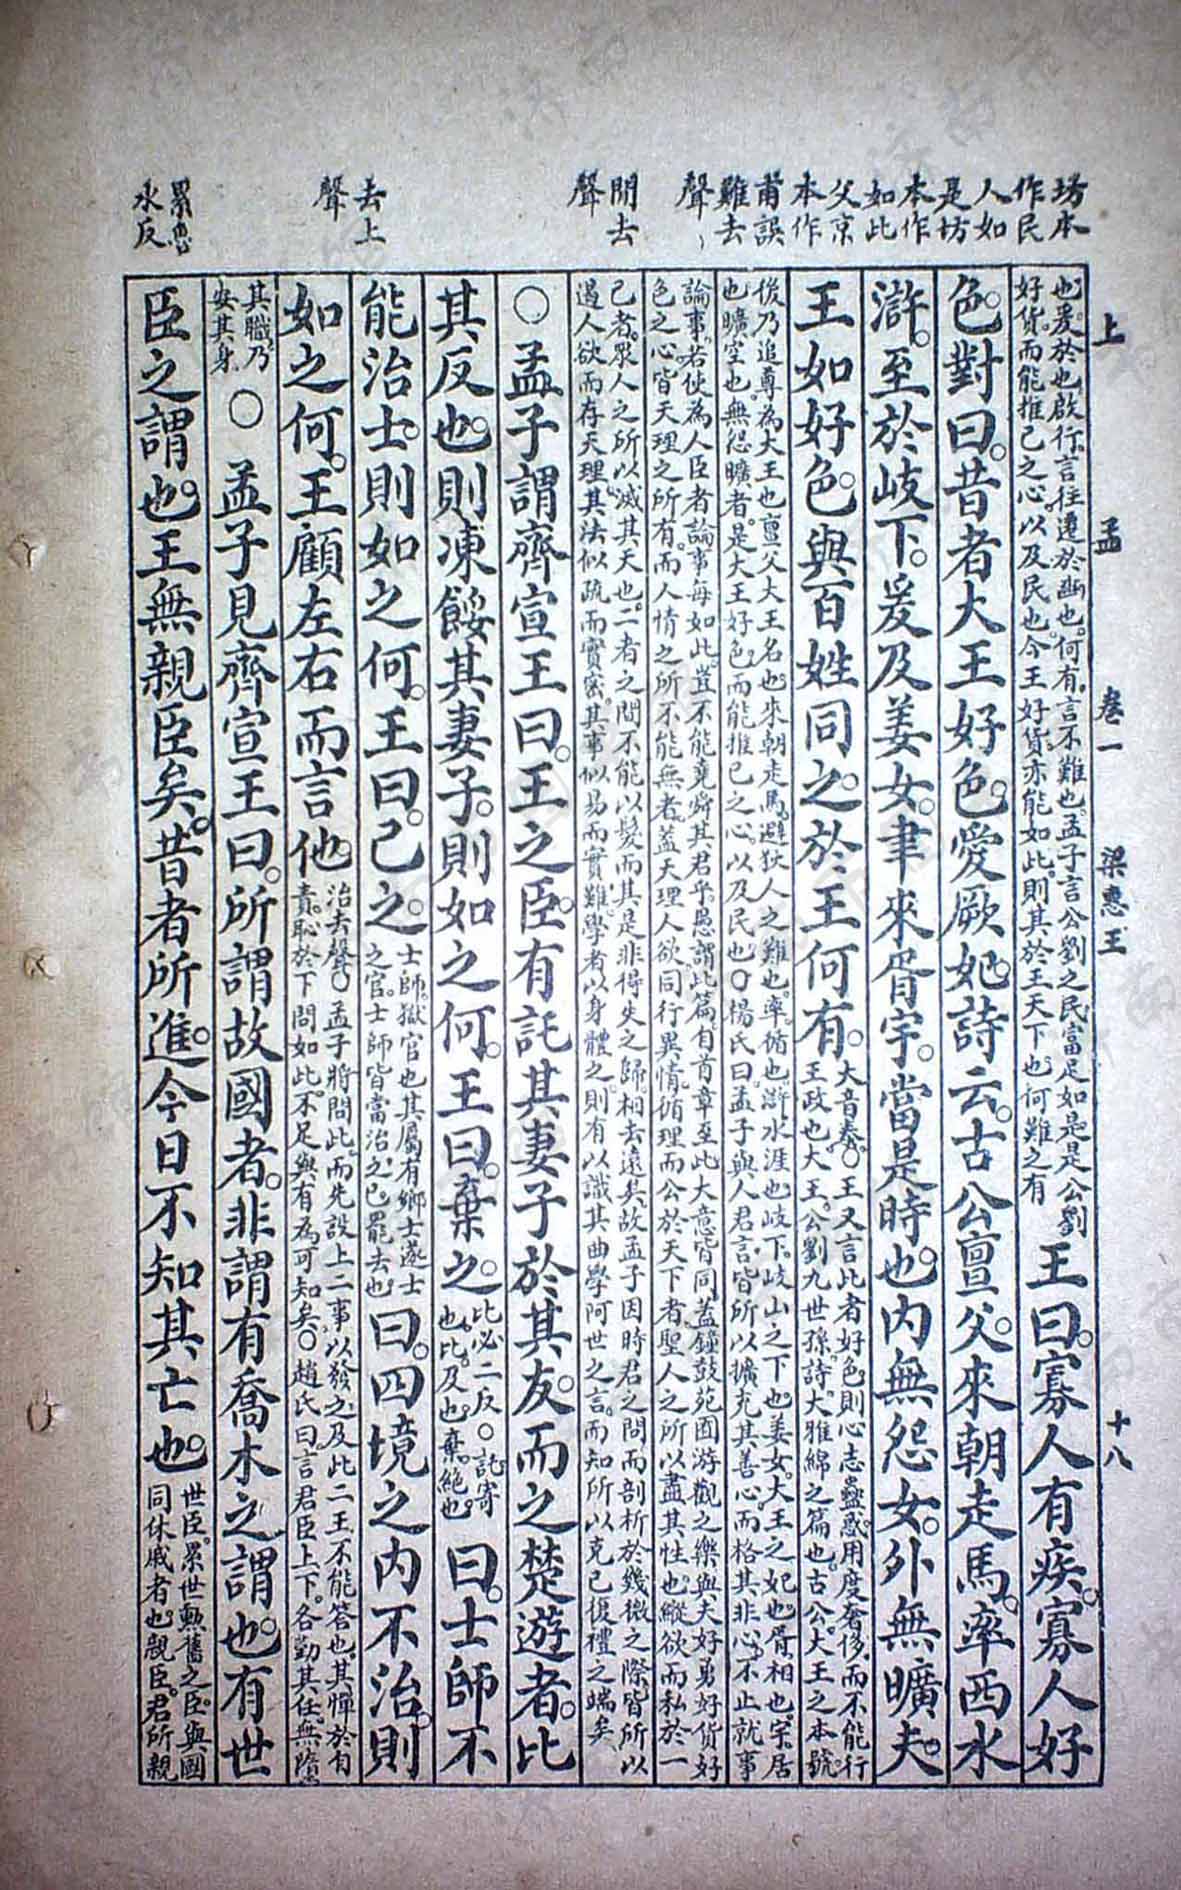 坊本
作民
人如
是坊
本作
如此
父京
本作
甫誤
難去
聲
間去
聲
去上
聲
累魯
水反
上 孟 卷一 梁惠王 十八
也。爰於也。啟行。言往遷於豳也。何有。言不難也。孟子言公劉之民富足如是。是公劉
好貨。而能推己之心。以及民也。今王好貨亦能如此。則其於王天下也。何難之有
王曰。寡人有疾。寡人好
色。對曰。昔者大王好色。愛厥妃。詩云。古公亶父。來朝走馬。率西水
滸。至於岐下。爰及姜女。聿來胥宇。當是時也。內無怨女。外無曠夫。
王如好色。與百姓同之。於王何有。
大音泰。○王又言此者好色則心志蠱惑。用度奢侈。而不能行
王政也。大王。公劉九世孫。詩。大雅綿之篇也。古公。大王之本號。
後乃追尊為大王也。亶父大王名也。來朝走馬。避狄人之難也。率。循也。滸水涯也。岐下。岐山之下也。姜女。大王之妃也。胥。相也。宇。居
也。曠。空也。無怨曠者。是大王好色。而能推己之心。以及民也。○楊氏曰。孟子與人君言。皆所以擴充其善心。而格其非心。不止就事
論事。若使為人臣者論事每如此。豈不能堯舜其君乎。愚謂此篇自首章至此大意皆同。蓋鐘鼓苑囿游觀之樂與夫好勇好貨好
色之心。皆天理之所有。而人情之所不能無者。蓋天理人欲同行異情。循理而公於天下者。聖人之所以盡其性也。縱欲而私於一
己者。眾人之所以滅其天也。二者之間不能以髮。而其是非得失之歸。相去遠矣。故孟子因時君之問。而剖析於幾微之際。皆所以
遏人欲而存天理。其法似疏而實密。其事似易而實難。學者以身體之。則有以識其曲學阿世之言。而知所以克己復禮之端矣
○孟子謂齊宣王曰。王之臣。有託其妻子於其友。而之楚遊者。比
其反也。則凍餒其妻子。則如之何。王曰。棄之。
比必二反。○託寄
也。比。及也。棄。絕也
曰。士師不
能治士。則如之何。王曰。已之。
士師。獄官也。其屬有鄉士遂士
之官。士師皆當治之。已。罷去也
曰。四境之內不治。則
如之何。王顧左右而言他。
治去聲。○孟子將問此。而先設上二事。以發之。及此二王不能答也。其憚於自
責。恥於下問如此。不足與有為可知矣。○趙氏曰。言君臣上下。各勤其任。無墮
其職。乃
安其身
○ 孟子見齊宣王曰。所謂故國者。非謂有喬木之謂也。有世
臣之謂也。王無親臣矣。昔者所進。今日不知其亡也。
世臣。累世勳舊之臣。與國
同休戚者也。親臣。君所親